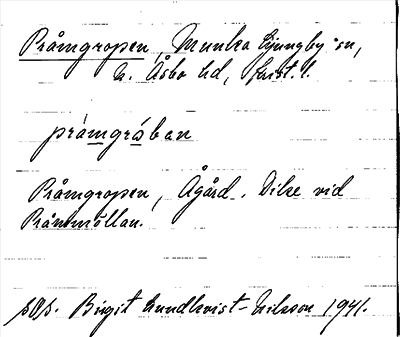 Pråmgropen, Munka Ljungby sn,
N. Åsbo hd, Krist. l.
prámgrǻban
Pråmgropen, Ågård. Dike vid
Pråmmöllan.
sOs. Birgit Lundkvist-Nilsson 1941.